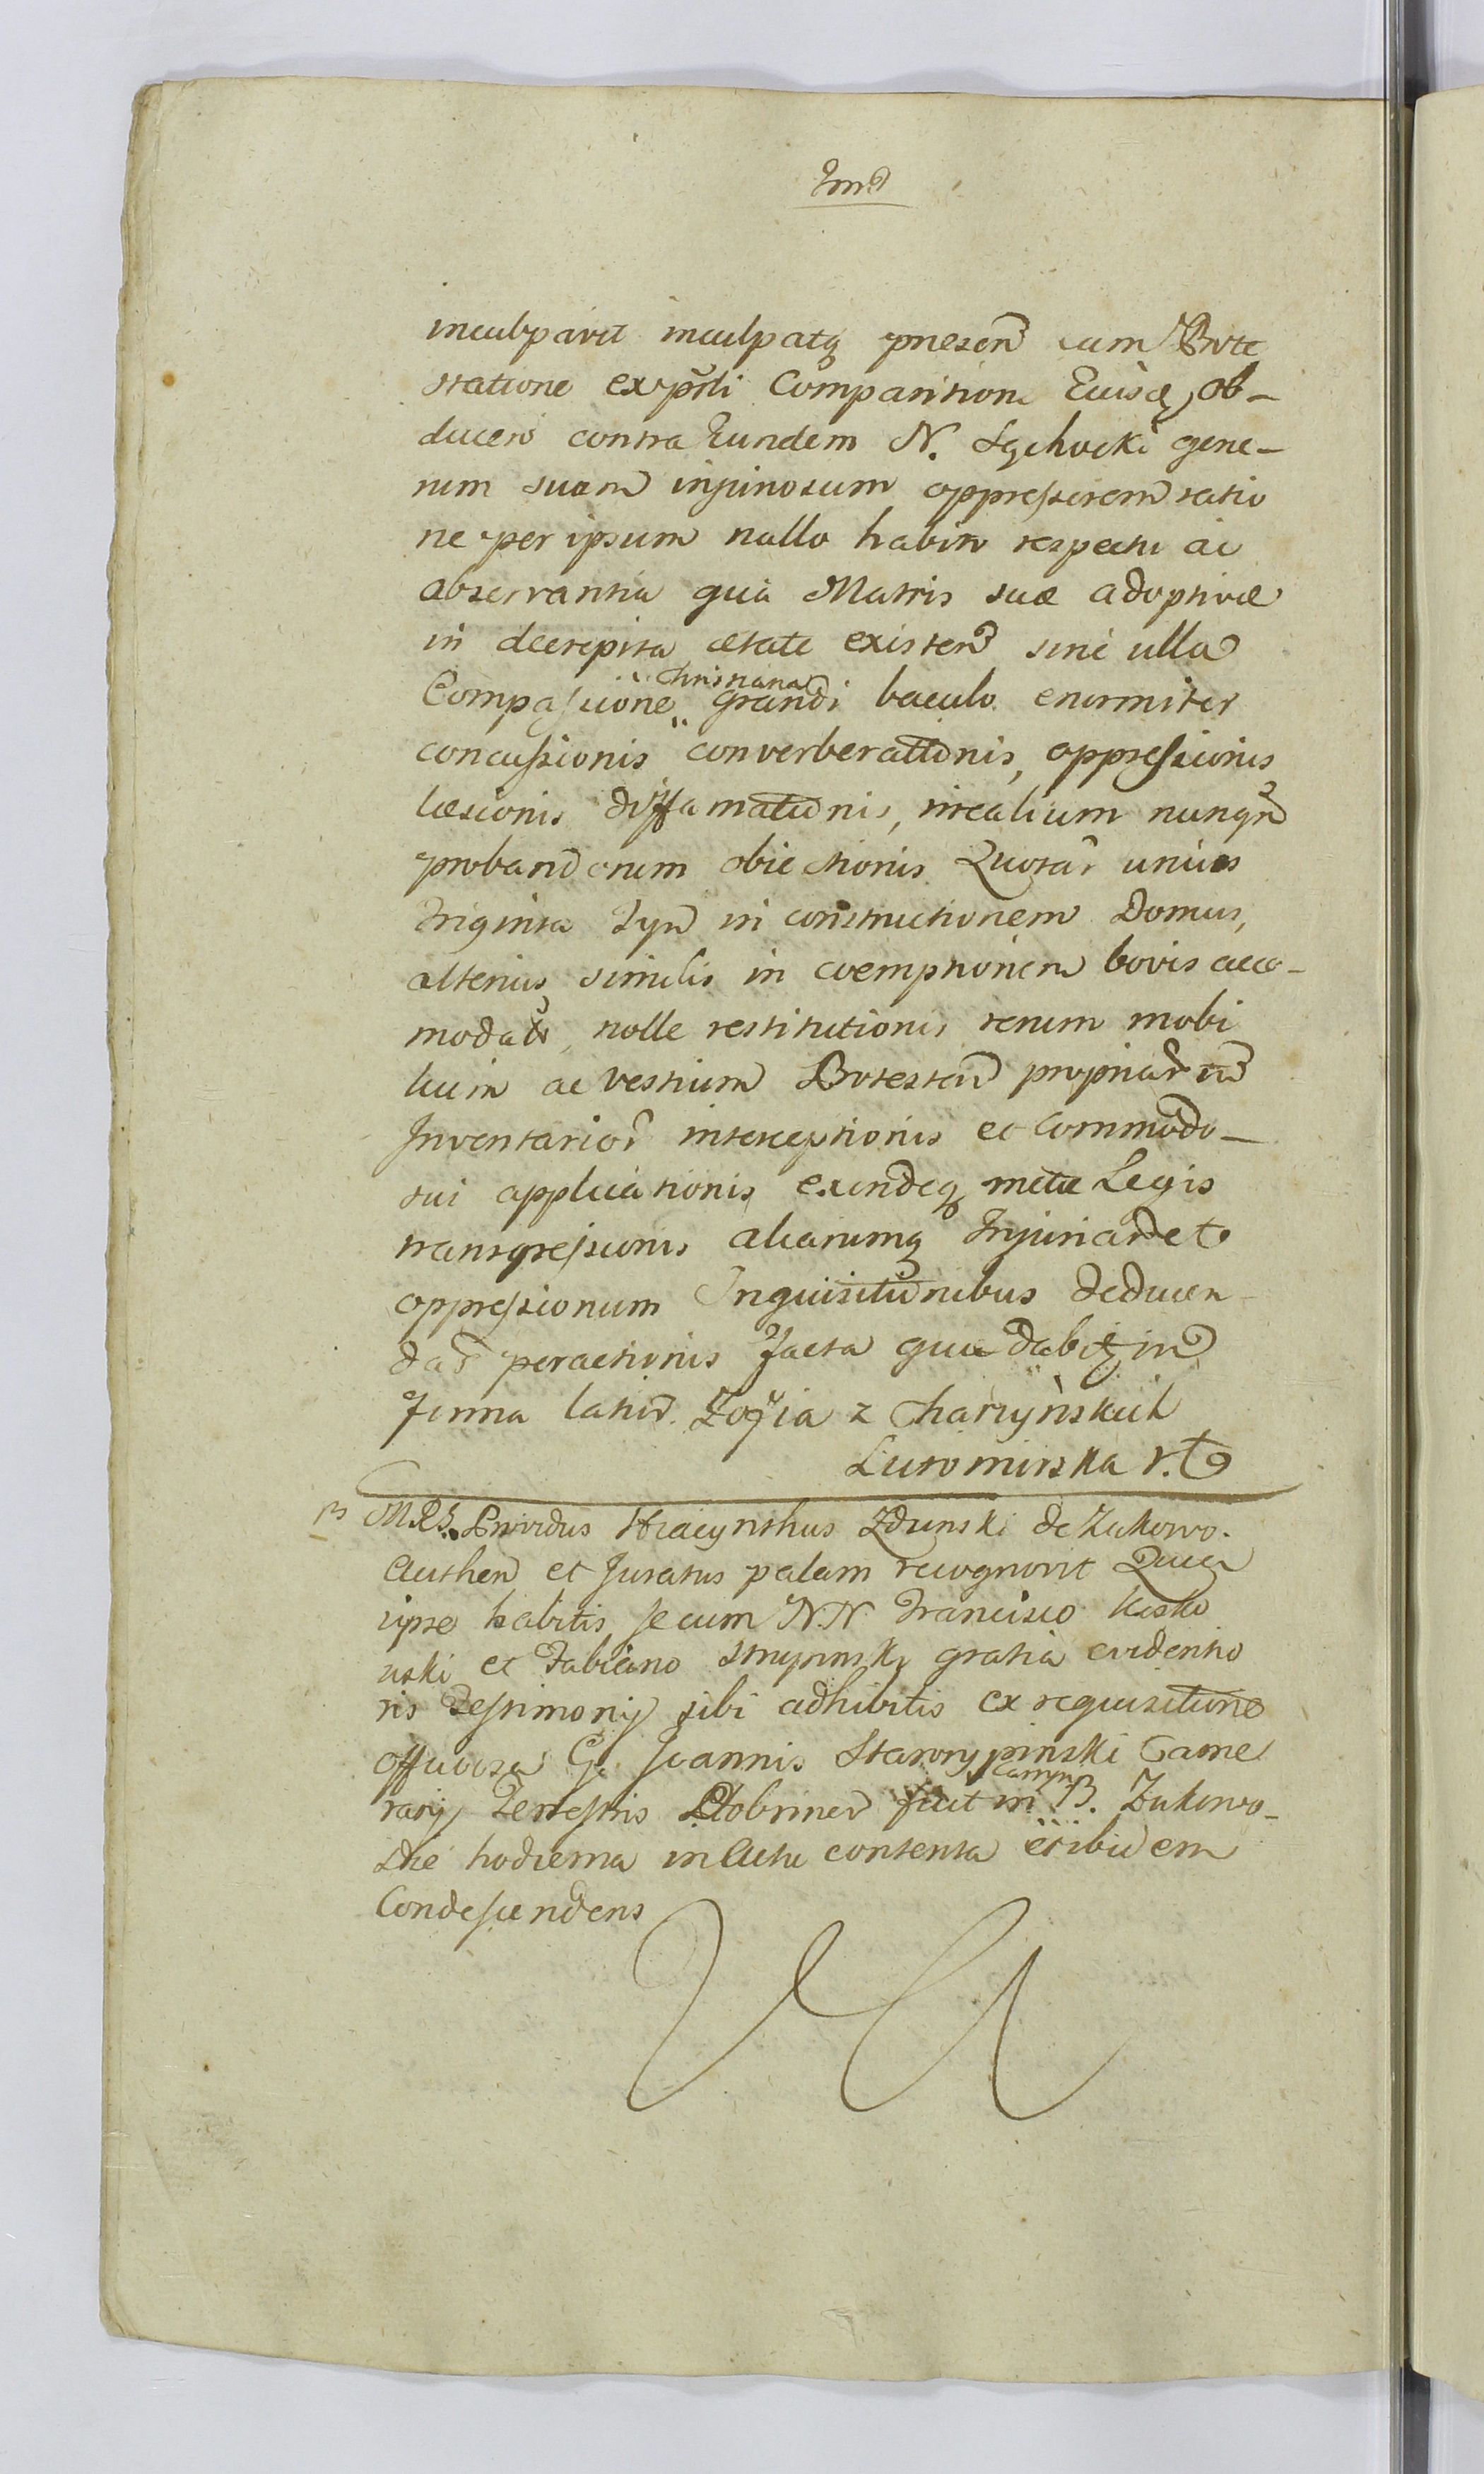 inculpavit inculpatq presen cum Prote
statione expsti Comparition Eiusd, ob-
ducen contra Eundem N. Lychocki gene-
rum suum injuriosum oppressorem ratio
ne per ipsum nullo habito respectu ac
observantia qua Matris suæ adoptivæ
in decrepita ætate existen sine ulla
Compassione Christiana grandi baculo enormiter
concussionis converberationis, oppressionis
læsionis diffamationis, irealium nunqm
probandorum obiectionis Quotar unius
Triginta Tyn in constructionem Domus,
alterius similis in coemptionem bovis acco-
modatæ, nolle restitutionis rerum mobi
lium ac vestium Protestan propriar
Inventarior interceptionis et Commodo-
sui applicationis exindeq metæ Legis
transgressionis aliarumq Injuriar et
oppressionum Inquisitionibus deducen-
dar peractionis facta quæ dabitur in
forma latior. Zofia z Charzyńskich
Lutomirska r.
MRS. Providus Hiacynthus Zdunski de Zukowo.
Authen et Juratus palam recognovit Quia
ipse habitis secum N.N. Francisco
uski et Fabiano gratia evidentio
ris Testimonij sibi adhibitis ex requisitione
officiosa G. Joannis Starorypinski Came
rarij Terrestris Dobrinen fuit in campo B. Zukowo-
die hodierna in Actu contenta et ibidem
Condescendens